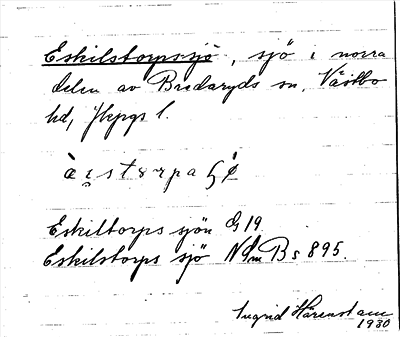 Eskilstorpssjö, sjö i norra
delen av Bredaryds sn, Västbo
hd, Jkpgs l.
Eskiltorps sjön G 19
Eskilstorps sjö NdmB s 895.
Ingrid Härenstam
1930